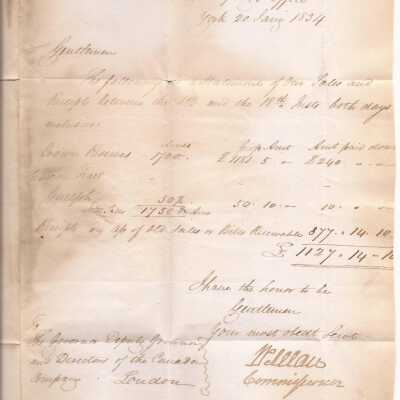 Office
York 20 Jany 1834
Gentlemen
The following is a Statement of Our Sales and
Receipts between the and the 18th Insts both days
inclusive
Acres Amt Amt paid down
Crown Reserves 1700 £1181 5 – £240 " –
Town
Guelph 50 ½ 50 . 10 . – 10 . –
1750 ½ Acres
Receipts on a/c of Old Sales or Bills Receivable 877 . 14 . 10
£ 1127 . 14 . 10
I have the honor to be
Gentlemen
Your most obedt Servt
To
The Governor Deputy Governor
and Directors of the Canada
Company London
Commissioner